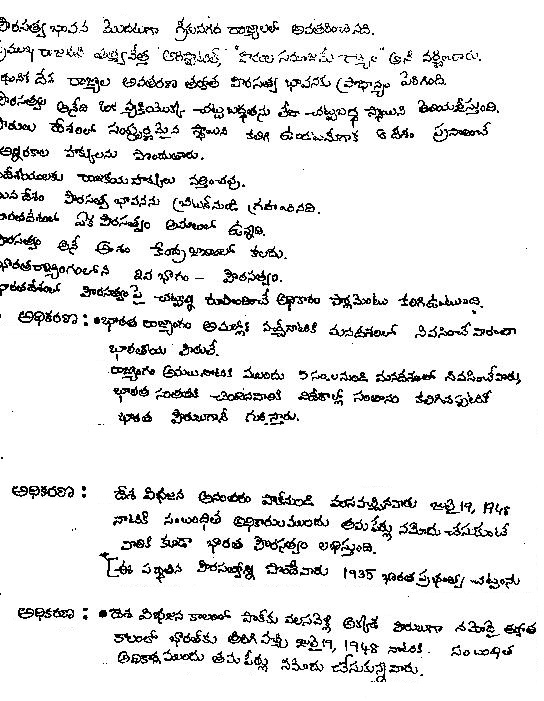 పౌరసత్వ భావన మొదటగా గ్రీకునగర రాజ్యాలలో అవతరించినది.
ప్రముఖ రాజనీతి తత్వవేత్త "అరిస్టాటిల్" "పౌరుల సముదాయమే రాజ్యం" అని వర్ణించారు.
దేశ రాజ్యాల అవతరణ తర్వాత పౌరసత్వ భావనకు ప్రాధాన్యం పెరిగింది.
పౌరసత్వం అనేది ఒక వ్యక్తియొక్క చట్టబద్ధతను లేదా చట్టబద్ధ స్థాయిని తెలియజేస్తుంది.
పౌరులు దేశంలో సంపూర్ణమైన స్థాయిని కలిగి ఉండటమేగాక ఆ దేశం ప్రసాదించే
హక్కులను పొందుతారు.
విదేశీయులకు రాజకీయహక్కులు వర్తించవు.
మన దేశం పౌరసత్వ భావనను బ్రిటన్‌నుండి గ్రహించినది.
భారతదేశంలో ఏక పౌరసత్వం అమలులో ఉన్నది.
పౌరసత్వం అనే అంశం కేంద్ర జాబితాలో కలదు.
భారతరాజ్యాంగంలోని 2వ భాగం - పౌరసత్వం.
భారతదేశంలో పౌరసత్వంపై చట్టాన్ని రూపొందించే అధికారం పార్లమెంటు కలిగిఉంటుంది.
అధికరణ : • భారత రాజ్యాంగం అమల్లోకి వచ్చేనాటికి మనదేశంలో నివసించే వారంతా
భారతీయ పౌరులే.
రాజ్యాంగం అమలునాటికి ముందు 5 సం.లనుండి మనదేశంలో నివసించేవారు,
భారత సంతతికి చెందినవారికి విదేశాల్లో సంతానం కలిగినప్పటికీ
భారత పౌరులుగానే గుర్తిస్తారు.
అధికరణ : దేశ విభజన అనంతరం పాక్‌నుండి వలసవచ్చినవారు జులై 19, 1948
నాటికి సంబంధిత అధికారులముందు తమపేర్లు నమోదు చేసుకుంటే
వారికి కూడా భారత పౌరసత్వం లభిస్తుంది.
* [ఈ పద్ధతిన పౌరసత్వాన్ని పొందేవారు 1935 భారత ప్రభుత్వ చట్టంను
అధికరణ : • దేశ విభజన కాలంలో పాక్‌కు వలసవెళ్లి అక్కడ పౌరులుగా నమోదై తర్వాత
కాలంలో భారత్‌కు తిరిగి వచ్చి జులై 19, 1948 నాటికి సంబంధిత
అధికారులముందు తమ పేర్లు నమోదు చేసుకున్నవారు.